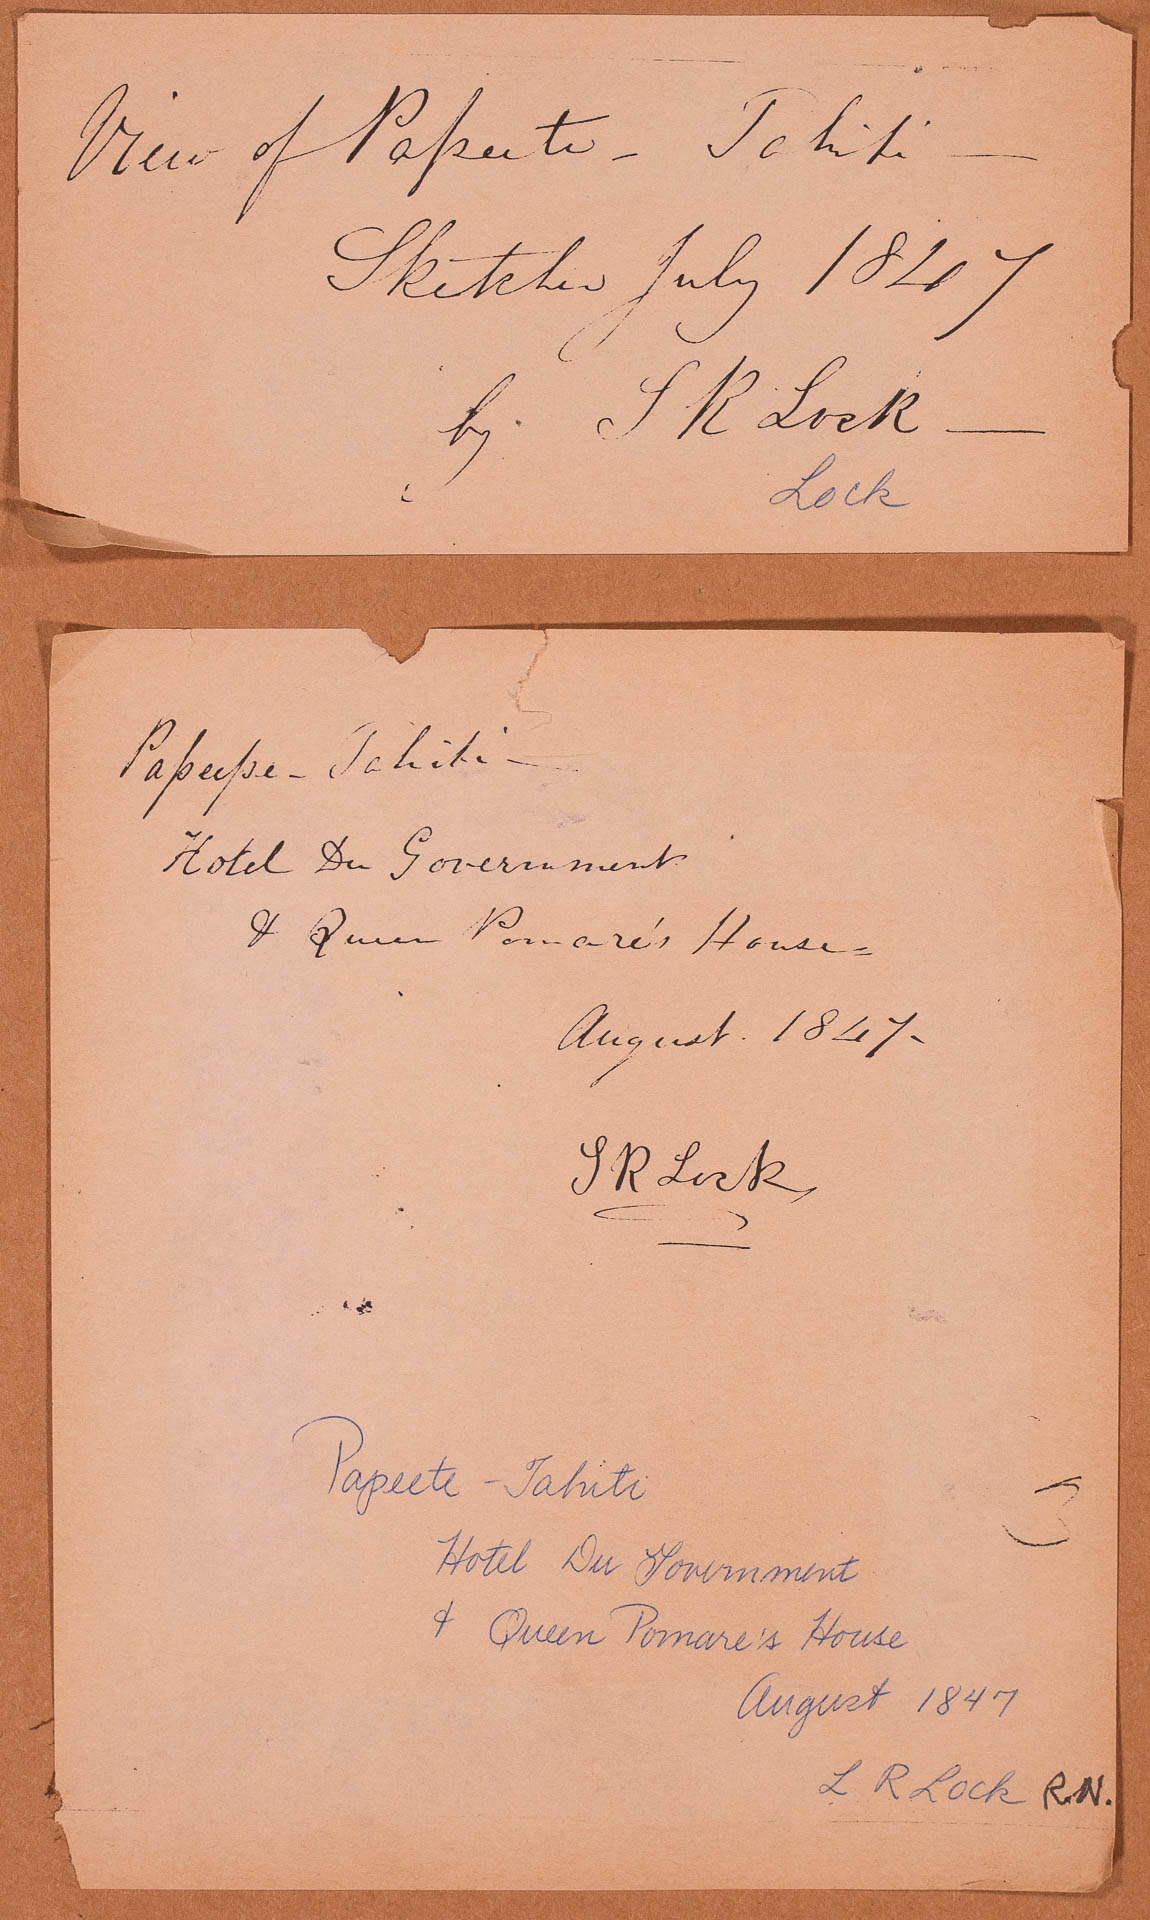 View of Papeete - Tahiti —
Sketches July 1847
by S R Lock —
Lock
Papeepe - Tahiti —
Hotel Du Government
& Queen Pomare's House =
August. 1847 -
S R Lock,
Papeete - Tahiti
Hotel Du Government
& Queen Pomare's House
August 1847
L R Lock R.N.